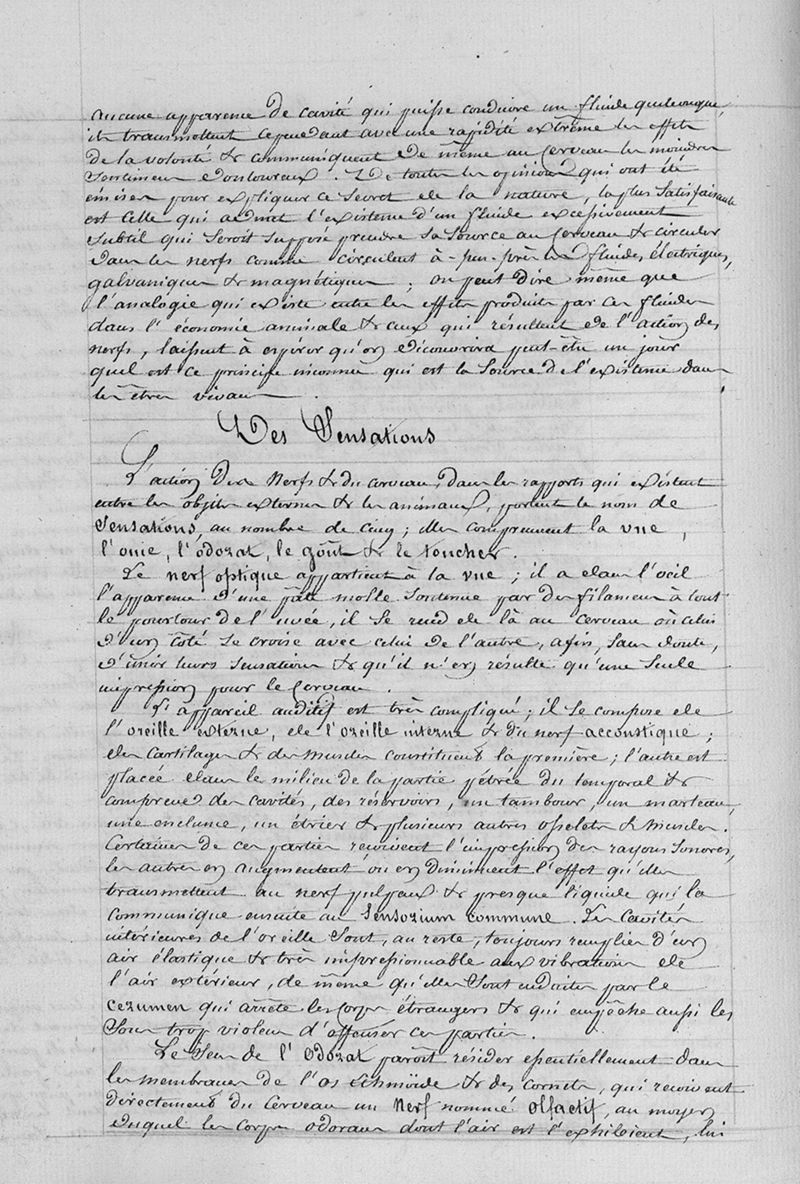 aucune apparence de cavité qui puisse conduire un fluide quelconque,
ils transmettent cependant avec une rapidité extrême les effets
de la volonté & communiquent de même au Cerveau les moindres
sentimens douloureux. De toutes les opinions qui ont été
émises pour expliquer ce secret de la nature, la plus satisfaisante
est celle qui admet l'existence d'un fluide excessivement
subtil qui seroit supposé prendre sa source au Cerveau & circuler
dans les nerfs comme circulent à-peu-près les fluides électriques,
galvaniques & magnétiques ; on peut dire même que
l'analogie qui existe entre les effets produits par ces fluides
dans l'économie animale & ceux qui résultent de l'action des
nerfs, laissent à espérer qu'on découvrira peut-être un jour
quel est ce principe inconnu qui est la source de l'existence dans
les êtres vivans.
Des Sensations
L'action des Nerfs & du cerveau, dans les rapports qui existent
entre les objets externes & les animaux, portent le nom de
Sensations, au nombre de cinq ; elles comprennent la vue,
l'ouie, l'odorat, le goût & le toucher.
Le nerf optique appartient à la vue ; il a dans l'oeil
l'apparence d'une pâte molle soutenue par des filamens à tout
le pourtour de l'uvée, il se rend de là au cerveau où celui
d'un côté se croise avec celui de l'autre, afin, sans doute,
d'unir leurs sensations & qu'il n'en résulte qu'une seule
impression pour le Cerveau.
L'appareil auditif est très compliqué ; il se compose de
l'oreille externe, de l'oreille interne & du nerf accoustique ;
des cartilages & des muscles constituent la première ; l'autre est
placée dans le milieu de la partie pétrée du temporal &
comprend des cavités, des réservoirs, un tambour, un marteau,
une enclume, un étrier & plusieurs autres osselets & muscles.
Certaines de ces parties reçoivent l'impression des rayons sonores,
les autres en augmentent ou en diminuent l'effet qu'elles
transmettent au nerf pulpeux & presque liquide qui la
communique ensuite au Sensorium commune. Les Cavités
intérieures de l'oreille sont, au reste, toujours remplies d'un
air élastique & très impressionnable aux vibrations de
l'air extérieur, de même qu'elles sont enduites par le
cerumen qui arrête les corps étrangers & qui empêche aussi les
sons trop violens d'offenser ces parties.
Le Sens de l'Odorat paroît résider essentiellement dans
les membranes de l'os Ethmoïde & des cornets, qui reçoivent
directement du Cerveau un Nerf nommé olfactif, au moyen
duquel les corps odorans dont l'air est l'exhibient, lui